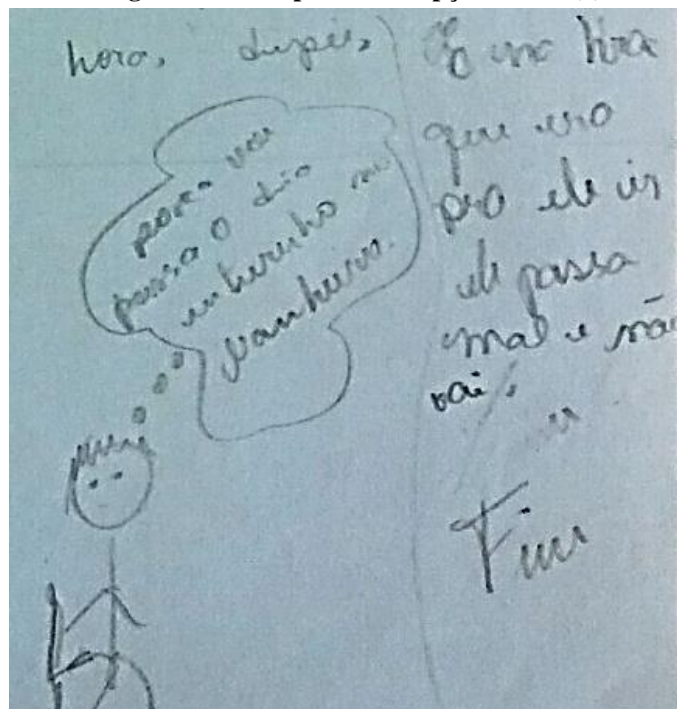 hora, dupois,
poxa vou
passa o dia
inteirinho no
vanheiro.
E na hora
que era
pro ele ir
ele passa
mal e não
vai,
Fim